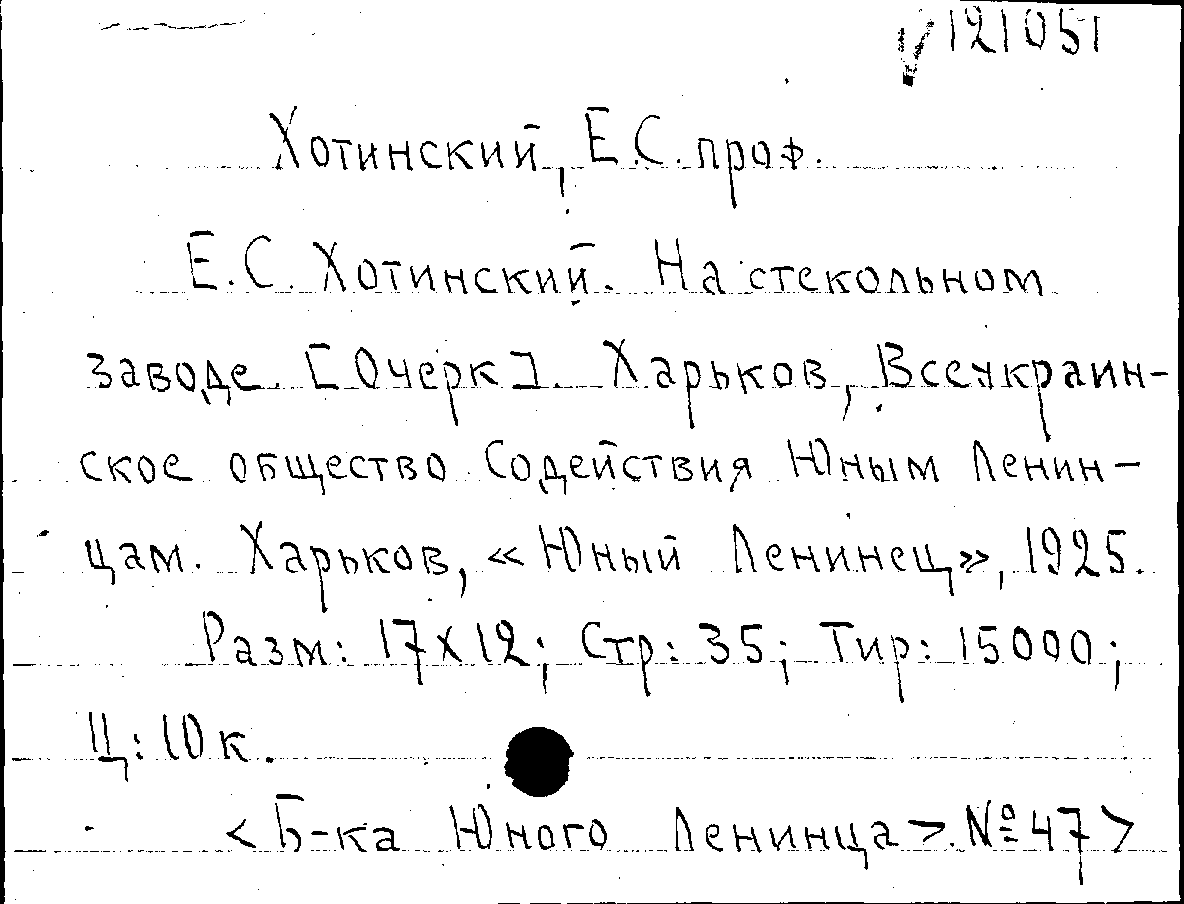 V 121051
Хотинский, Е.С. проф.
Е.С. Хотинский. На стекольном
заводе. [Очерк]. Харьков, Всеукраин-
ское общество Содействия Юным Ленин-
цам. Харьков, «Юный Ленинец», 1925.
Разм: 17х12; Стр: 35; Тир: 15000;
Ц: 10к.
<Б-ка Юного Ленинца>. №47>